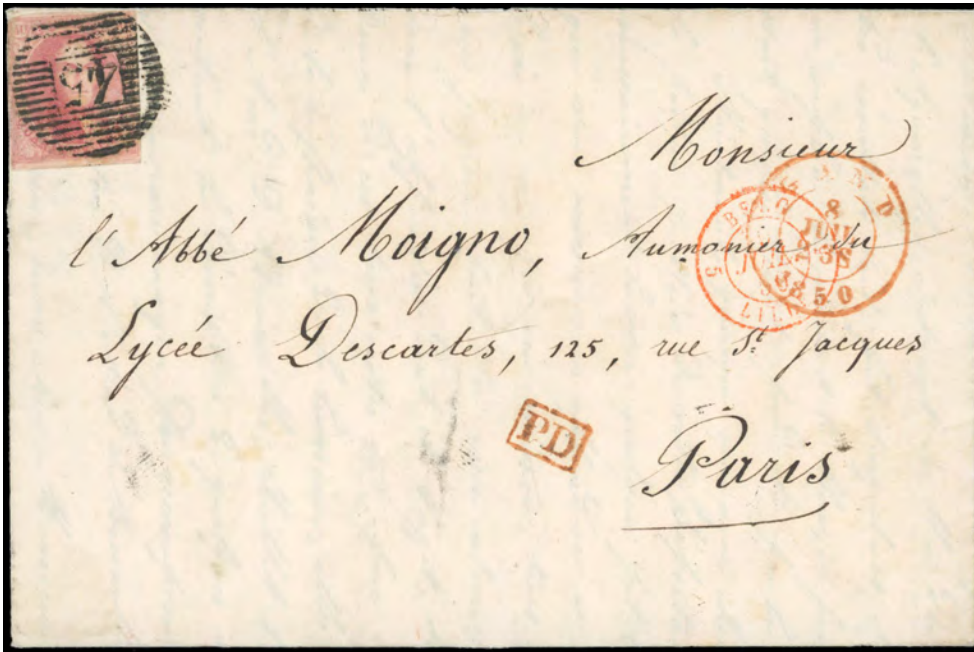 45
Monsieur
l'Abbé Moigno, Aumonier du
Lycée Descartes, 125, rue St. Jacques
Paris
PD
8
JUIN
1850
BELG.
5